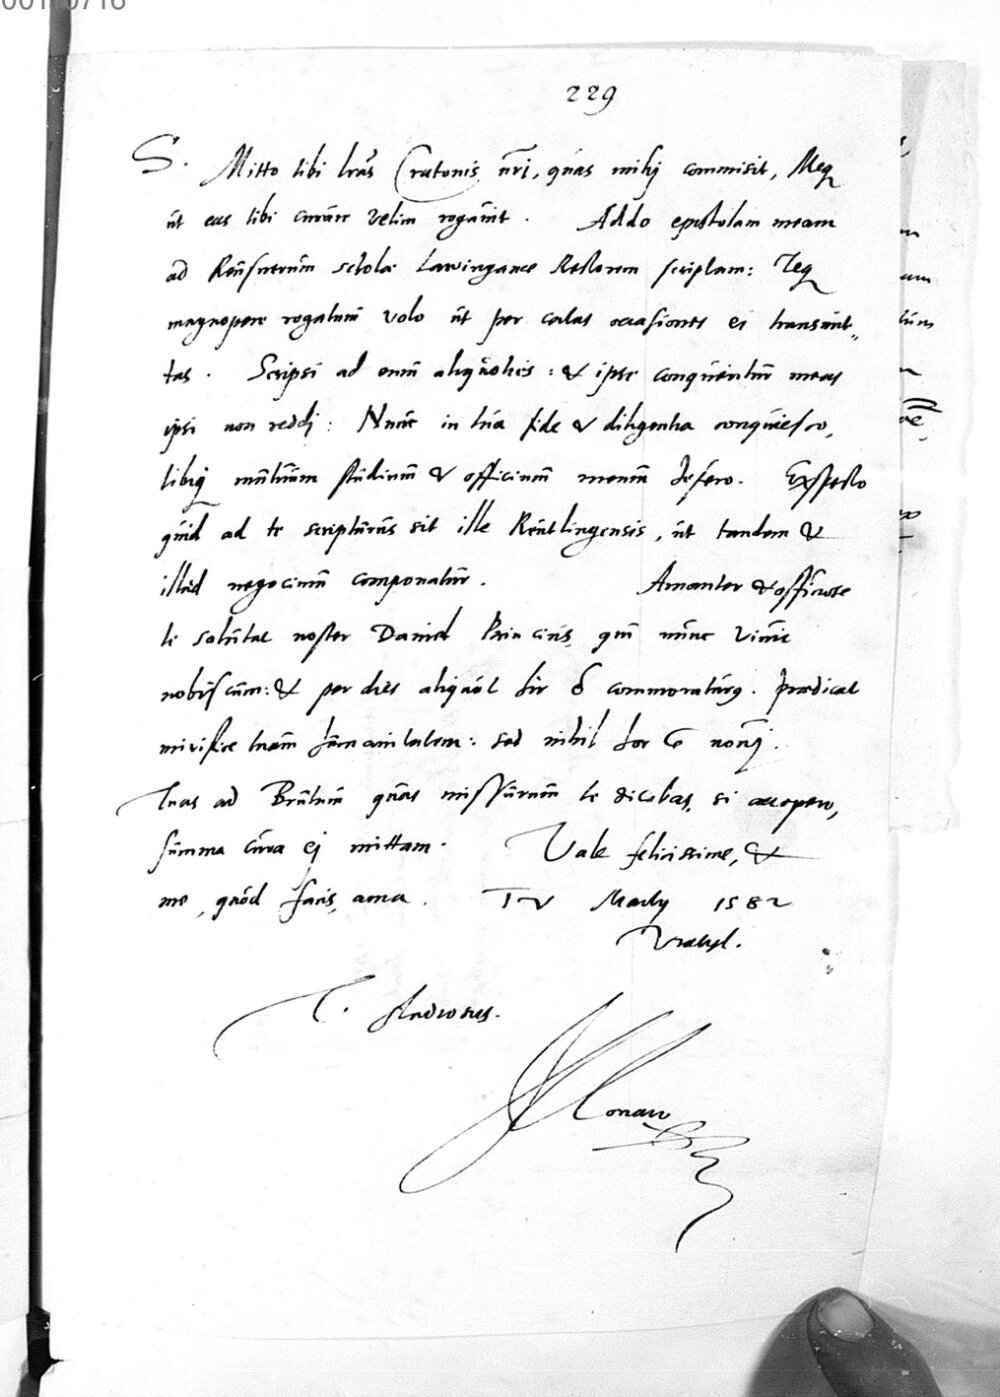 229
S. Mitto tibi lras Cratonis nri, quas mihi commisit, Meq
ut eas tibi curare velim rogavit. Addo epistolam meam
ad Reusnerum scholae Lawinganae Rectorem scriptam: Teq
magnopere rogatum volo ut per certas occasiones ei transmit„
tas. Scripsi ad eum aliquoties: & ipse conqueritur meas
ipsi non reddi: Nunc in tua fide & diligentia conquiesco,
tibiq mutuum studium & officium meum defero. Exspecto
quid ad te scripturus sit ille Reutlingensis, ut tandem &
illud negocium componatur. Amanter & officiose
te salutat noster Daniel Princius, qui nunc vivit
nobiscum: & per dies aliquot hic commoraturus. Praedicat
mirifice tuam humanitatem: sed nihil hoc novi.
Tuas ad Brutum quas missurum te dicebas, si accepero,
summa cura ei mittam. Vale felicissime, &
me, quod facis, ama. Martij 1582
Vratisl.
T. studiosus.